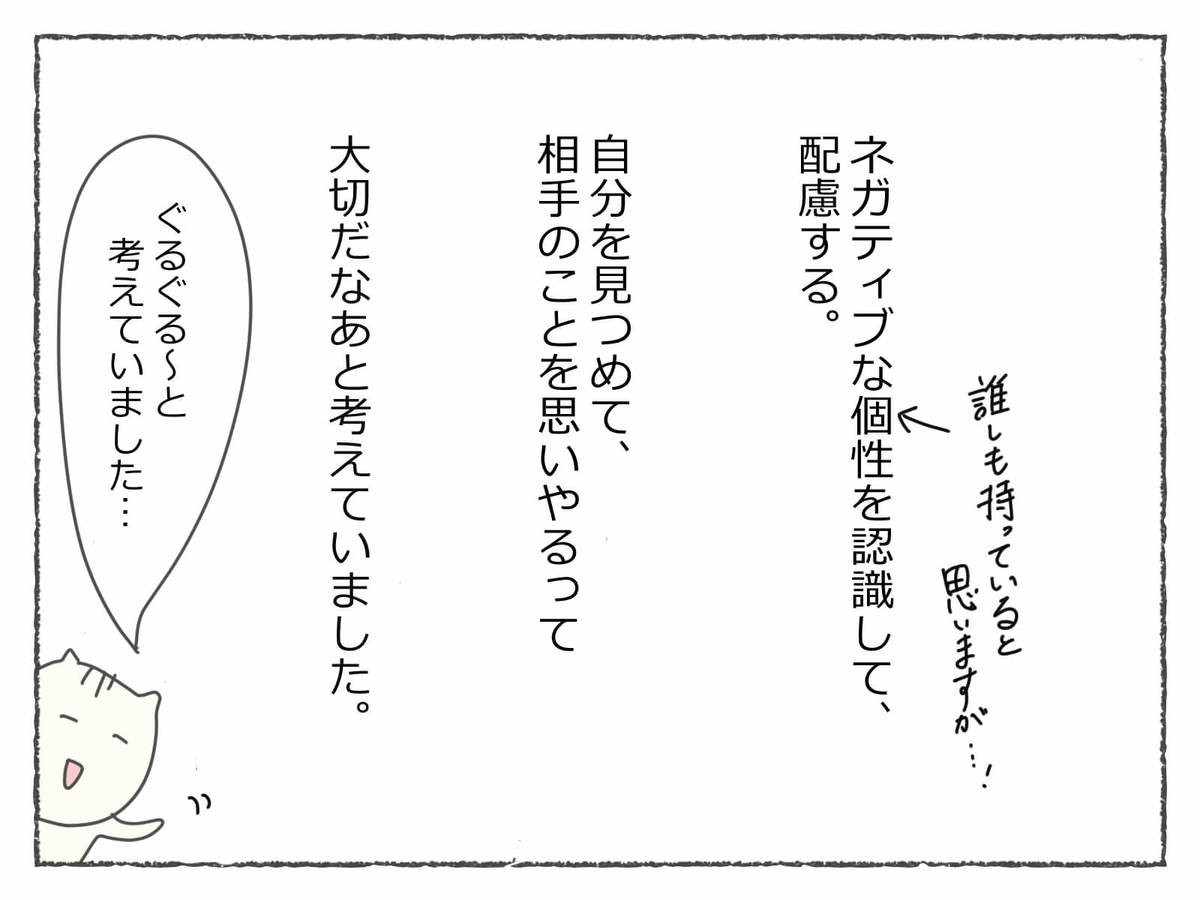 ネガティブな個性を認識して、
配慮する。
誰しも持っていると
思いますが…!
自分を見つめて、
相手のことを思いやるって
大切だなあと考えていました。
ぐるぐる〜と
考えていました…